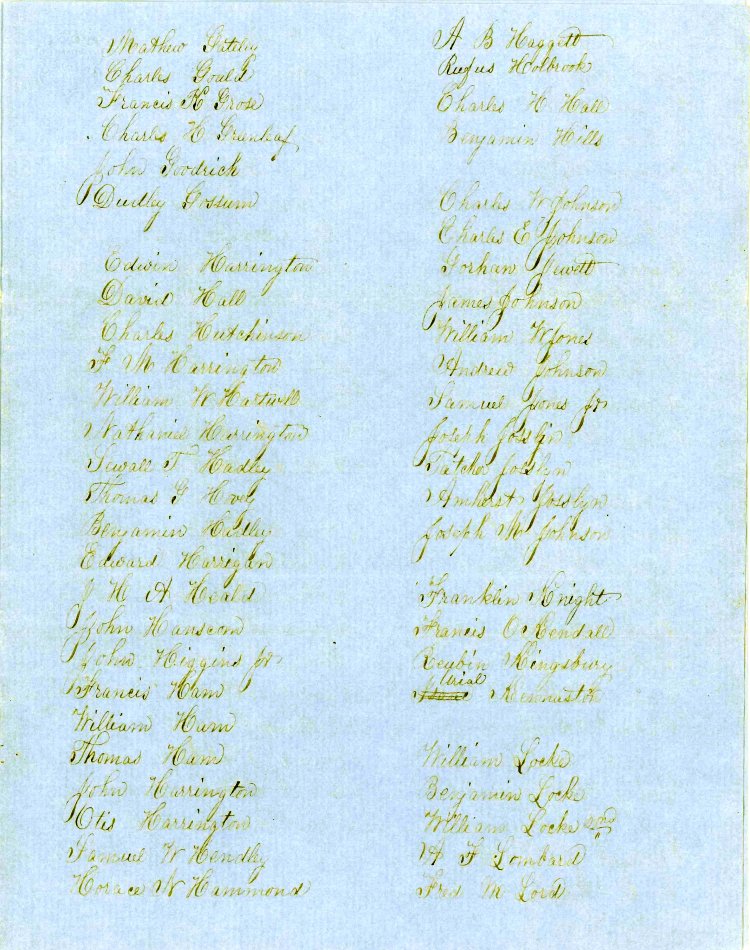 Mathew Gateley
Charles Gould
Francis K Grose
Charles H Greenleaf
John Goodrich
Dudley Gossum
Edwin Harrington
David Hall
Charles Hutchinson
F M Harrington
William W Hartwell
Nathaniel Harrington
Sewall T Hadley
Thomas G Hovey
Benjamin Hadley
Edward Harrigan
J H A Heales
John Hanscom
John Higgins Jr
Francis Ham
William Ham
Thomas Ham
John Harrington
Otis Harrington
Samuel W Hendley
Horace N Hammond
A B Haggett
Rufus Holbrook
Charles H Hall
Benjamin Hills
Charles W Johnson
Charles E Johnson
Gorham Jewett
James Johnson
William W Jones
Andrew Johnson
Samuel Jones Jr
Joseph Josslin
Tatcher Josslyn
Amherst Josslyn
Joseph M Johnson
Franklin Knight
Francis O Kendall
Reubin Kingsbury
Urial
William Locke
Benjamin Locke
William Locke 2nd
A F Lombard
Fred M Lord